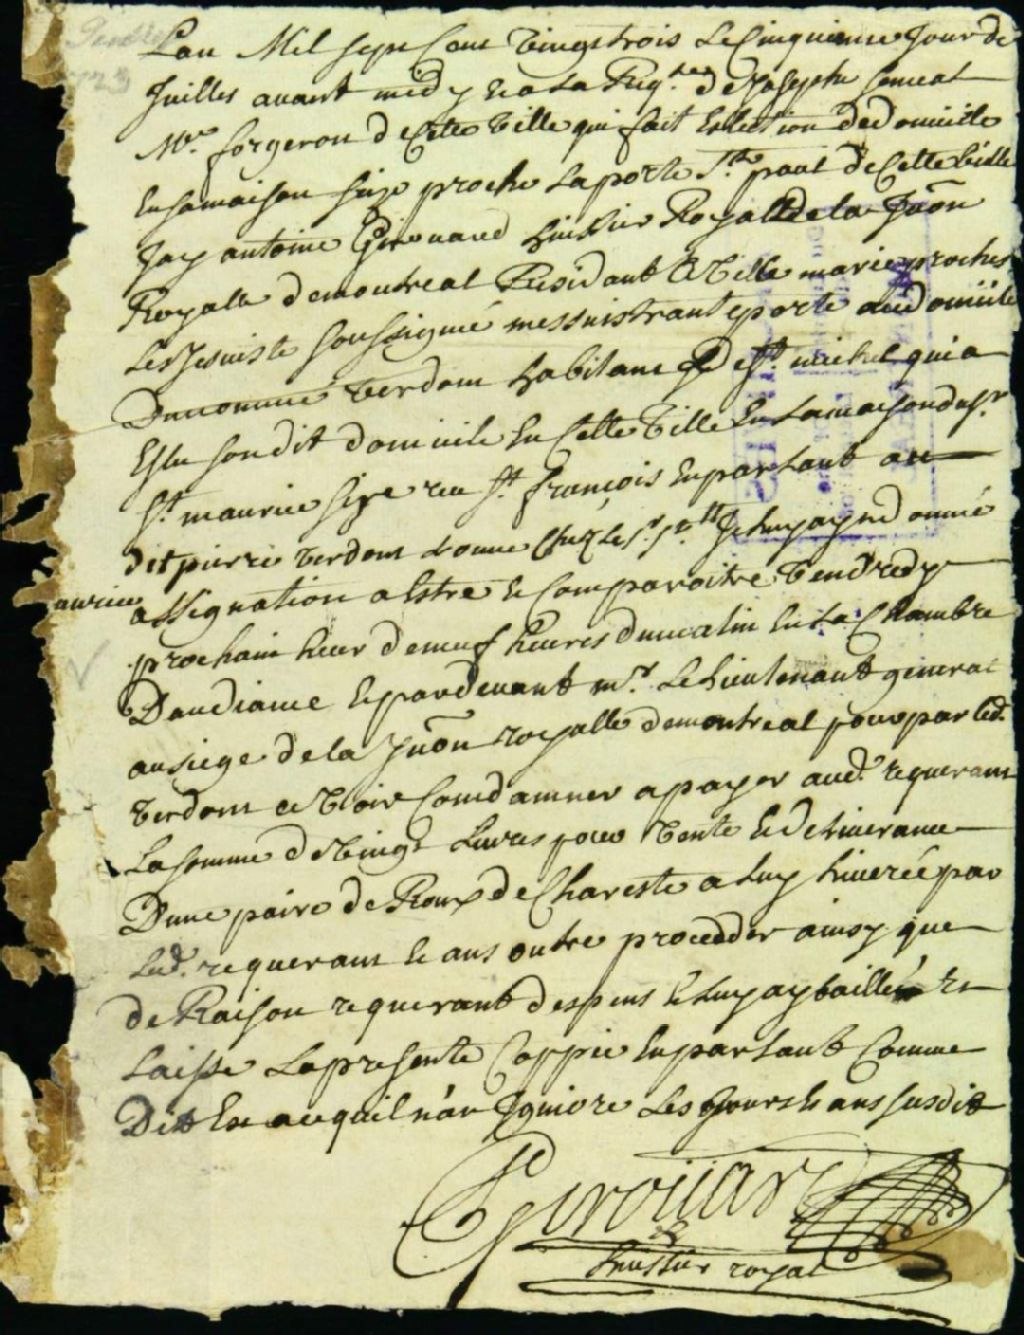 Lan Mil sept Cent Vingt trois Le Cinquieme Jour de
Juillet avant midy a La Reqte de Joseph
Mre forgeron de Cette Ville qui fait Eslection de domicile
En sa maison size proche La porte St paul de Cette Ville
Jay antoine Girouard huissier Royalle de la Juõn
Royalle de montreal Residant Ville marie proche
Les Jesuiste soussigné me suis transporté au domicile
Du nommé Verdom habitant de St michel qui a
Eslu son dit domicile En Cette Ville En La maison du Sr
St maurice size rue St françois En parlant au
dit pierre Verdom trouvé Chéz Le S. St Je luy ay donné
aurice
assignation a Estre & Comparoitre Vendredy
prochain heur de neuf heures du matin En La Chambre
Daudiance & pardevant mr. Le Lieutenant general
au siege de la Juõn royalle de montreal pour par led.
Verdom ce Voir Condamner a payer aud. requerant
La somme de Vingt Livres pour Vente & deLiverance
Dune paire de Roux de Chareste a Luy Liverée par
Led. requerant & ans outre procedder ainsy que
de Raison requerant despens & Luy ay baillé &
Laisse La presente Coppie En parlant Comme
Dit Est a ce quil n'an Jgniore Les Jours & ans susdit
Girouard
huissier royal